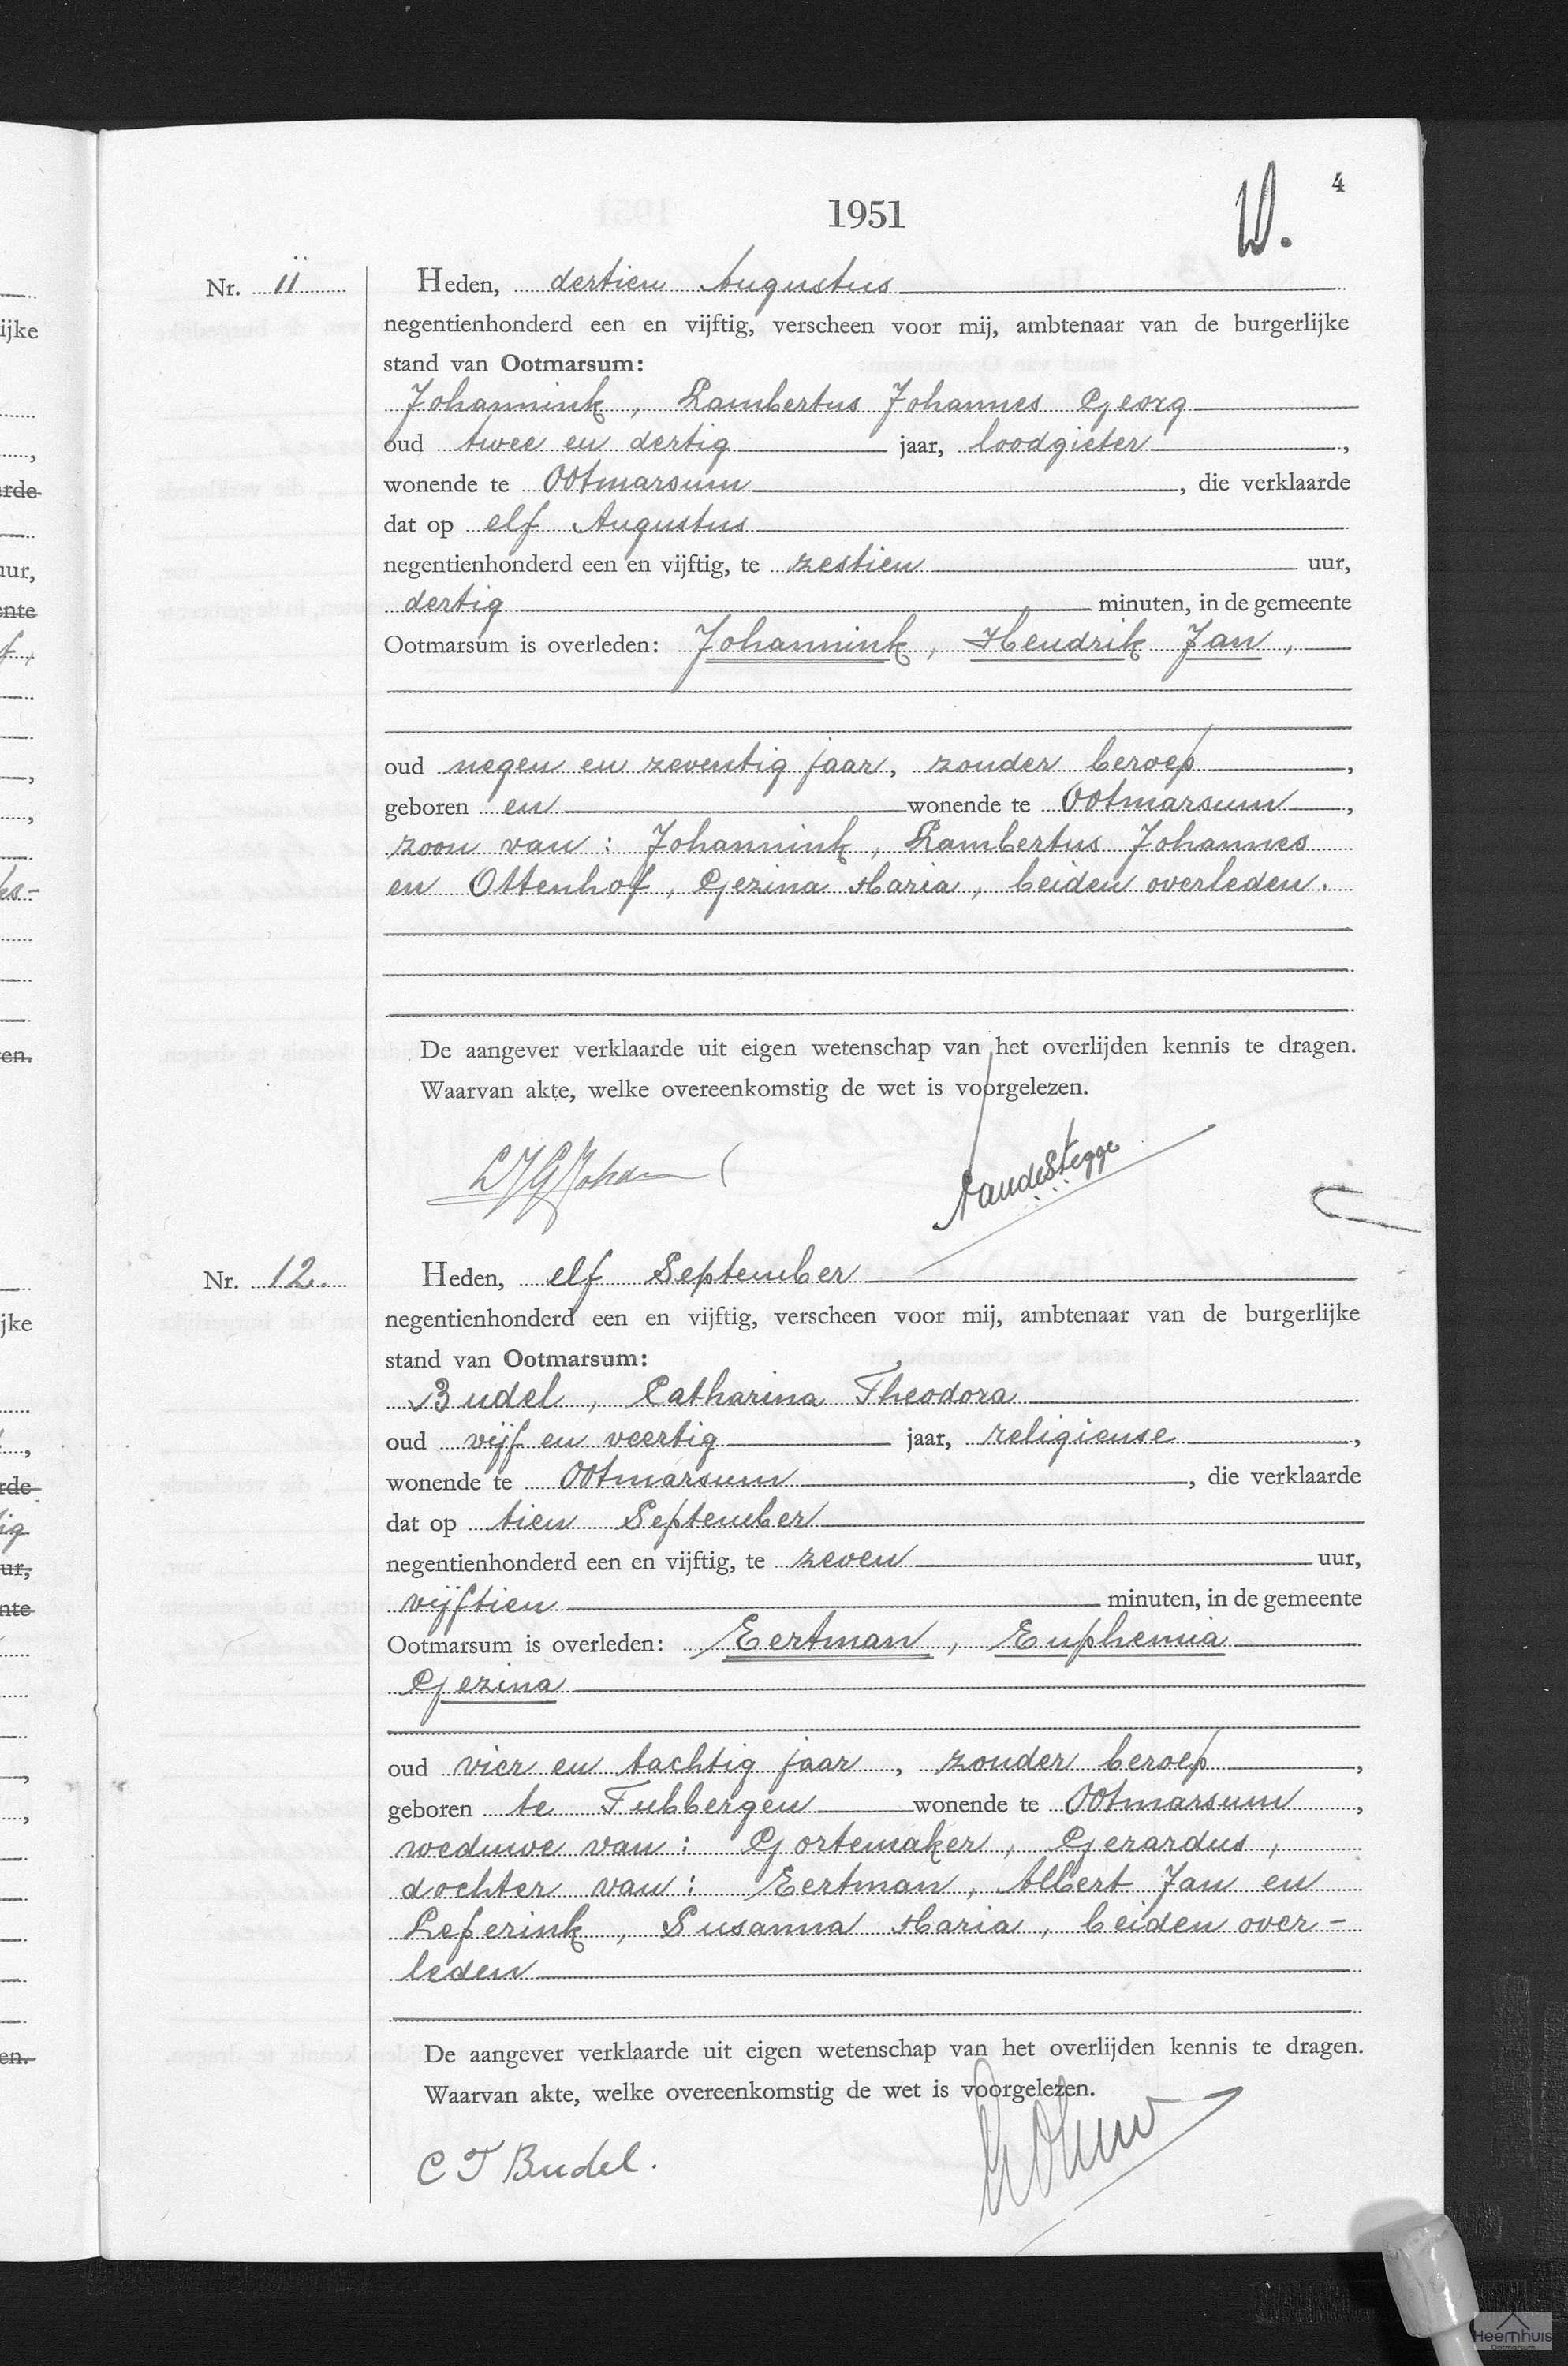 4
1951
Nr. 11
Heden, dertien Augustus
negentienhonderd een en vijftig, verscheen voor mij, ambtenaar van de burgerlijke
stand van Ootmarsum:
Johannink, Lambertus Johannes Georg
oud twee en dertig jaar, loodgieter,
wonende te Ootmarsum, die verklaarde
dat op elf Augustus
negentienhonderd een en vijftig, te zestien uur,
dertig minuten, in de gemeente
Ootmarsum is overleden: Johannink, Hendrik Jan,
oud negen en zeventig jaar, zonder beroep,
geboren en wonende te Ootmarsum,
zoon van: Johannink, Lambertus Johannes
en Ottenhof, Gezina Maria, beiden overleden.
De aangever verklaarde uit eigen wetenschap van het overlijden kennis te dragen.
Waarvan akte, welke overeenkomstig de wet is voorgelezen.
Nr. 12.
Heden, elf September
negentienhonderd een en vijftig, verscheen voor mij, ambtenaar van de burgerlijke
stand van Ootmarsum:
Budel, Catharina Theodora
oud vijf en veertig jaar, religieuse,
wonende te Ootmarsum, die verklaarde
dat op tien September
negentienhonderd een en vijftig, te zeven uur,
vijftien minuten, in de gemeente
Ootmarsum is overleden: Eertman, Euphemia
Gezina
oud vier en tachtig jaar, zonder beroep,
geboren te Tubbergen wonende te Ootmarsum,
weduwe van: Gortemaker, Gerardus,
dochter van: Eertman, Albert Jan en
Leferink, Susanna Maria, beiden over-
leden
De aangever verklaarde uit eigen wetenschap van het overlijden kennis te dragen.
Waarvan akte, welke overeenkomstig de wet is voorgelezen.
C T Budel.
Heemhuis
Ootmarsum